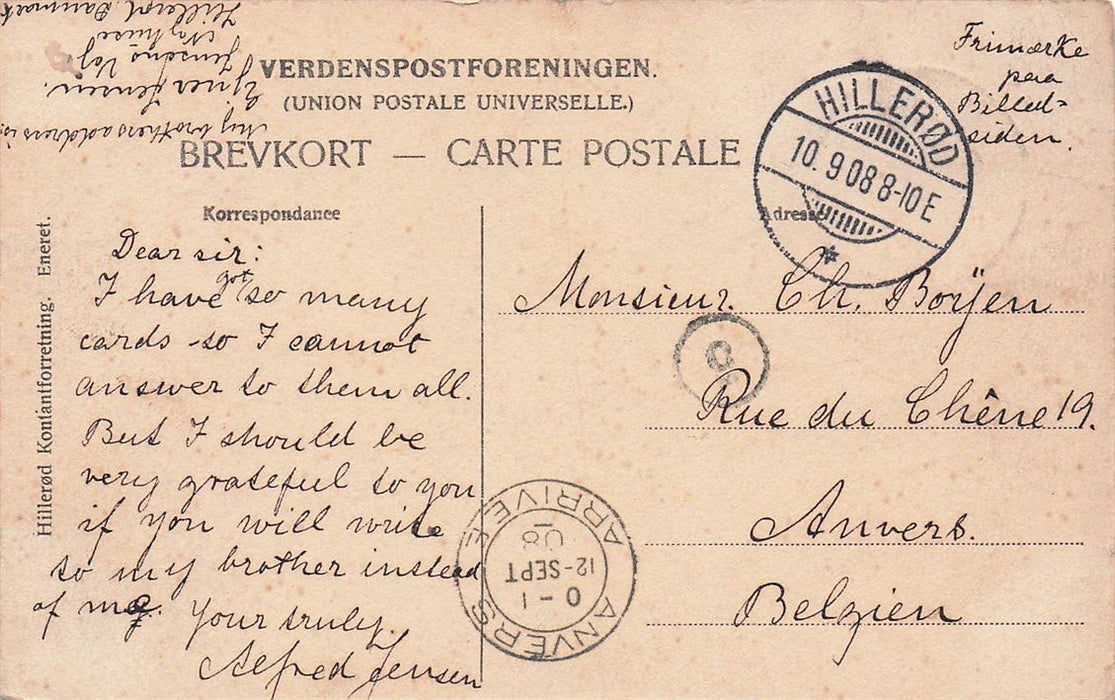 My brothers address is:
Ejner Jensen.
Jensens Vej
Nyhuse
Hillerød, Danmark
VERDENSPOSTFORENINGEN.
(UNION POSTALE UNIVERSELLE.)
BREVKORT — CARTE POSTALE
Frimærke
paa
Billed-
siden.
HILLERØD
10. 9 08 8-10 E
Korrespondance
Adresse
Dear sir:
I have got so many
cards so I cannot
answer to them all.
But I should be
very grateful to you
if you will write
to my brother instead
of me. Your truly.
Alfred Jensen
Monsieur. Ch. Boÿen
Rue du Chêne 19.
Anvers.
Belgien
ANVERS ARRIVÉE
0 - 1
12-SEPT
08
Hillerød Kontantforretning. Eneret.